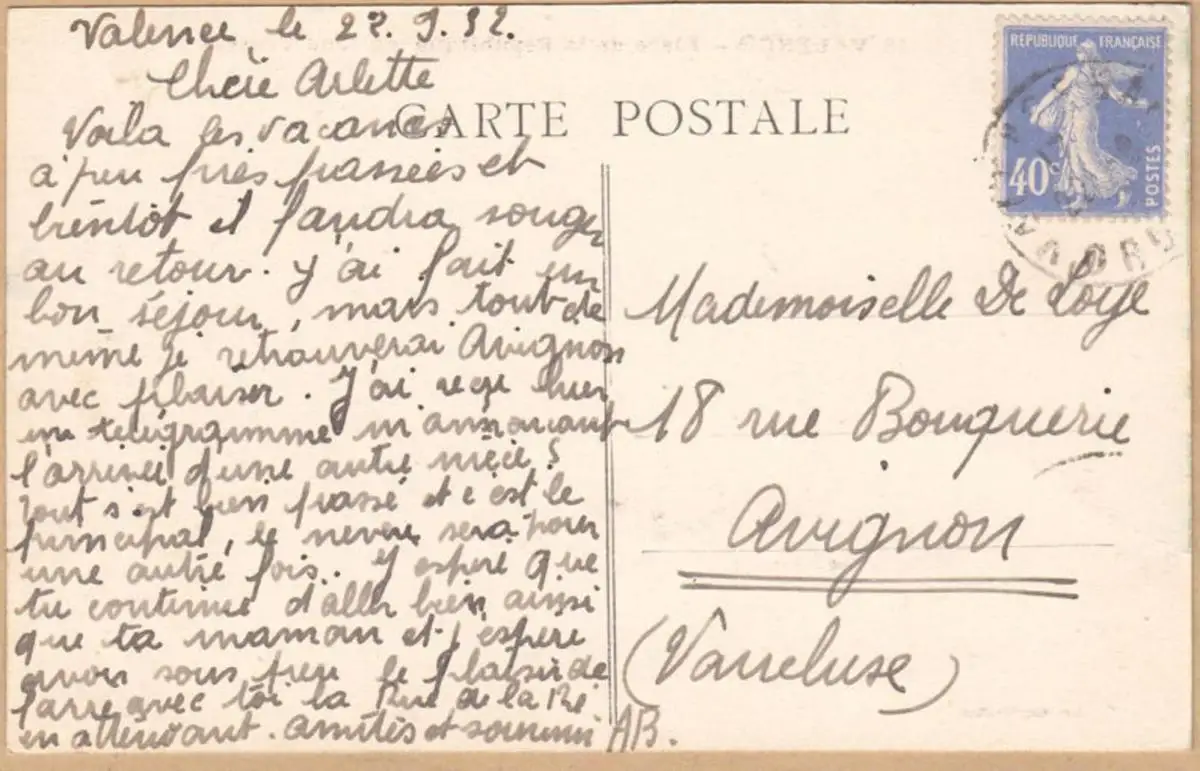 Valence, le 27.9.32.
Chère Arlette
Voilà les vacances
à peu près passées et
bientôt il faudra songer
au retour. J'ai fait un
bon séjour, mais tout de
même je retrouverai Avignon
avec plaisir. J'ai reçu hier
un télégramme m'annonçant
l'arrivée d'une autre nièce!
Tout s'est bien passé et c'est le
principal, le neveu sera pour
une autre fois.. J'espère que
tu continues d'aller bien ainsi
que ta maman et j'espère
avoir sous peu le plaisir de
faire avec toi la Rue de la Ré
en attendant. amitiés et souvenirs AB.
CARTE POSTALE
RÉPUBLIQUE FRANÇAISE
40c
POSTES
Mademoiselle De Loye
18 rue Bouquerie
Avignon
(Vaucluse)